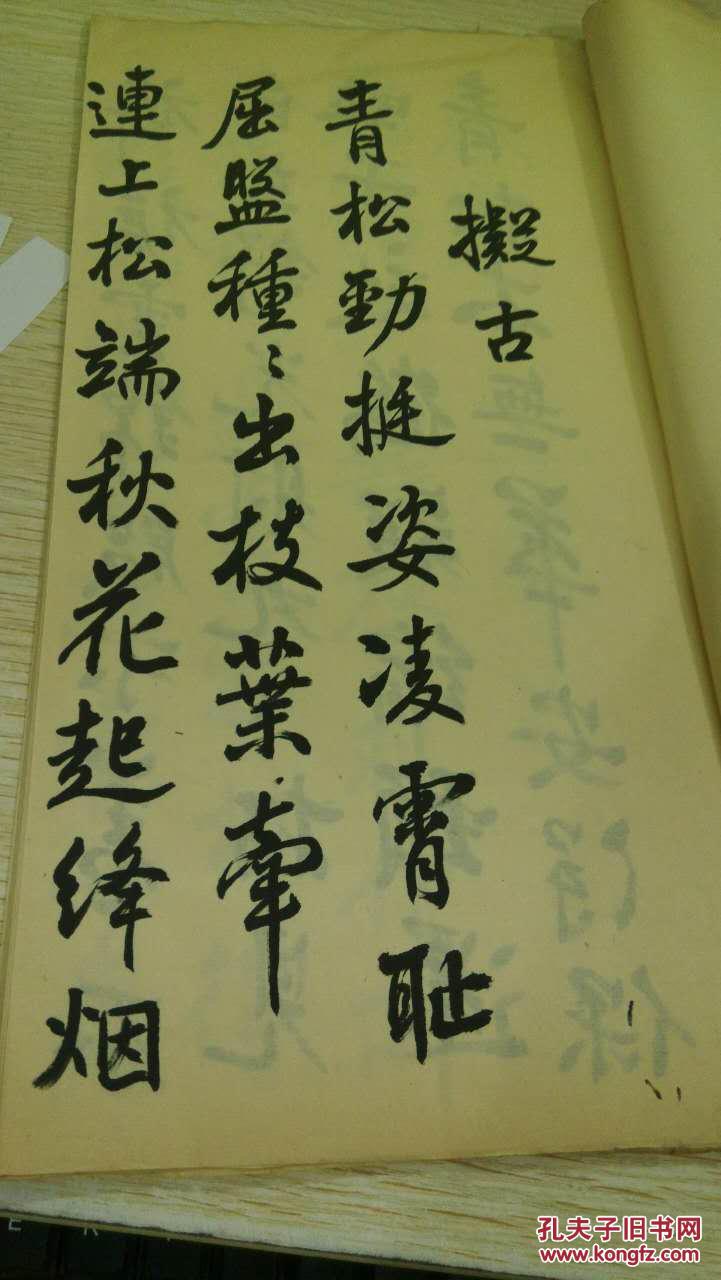 擬古
青松勁挺姿凌霄耻
屈盤種〻出枝葉牽
連上松端秋花起絳烟
孔夫子旧书网
www.kongfz.com